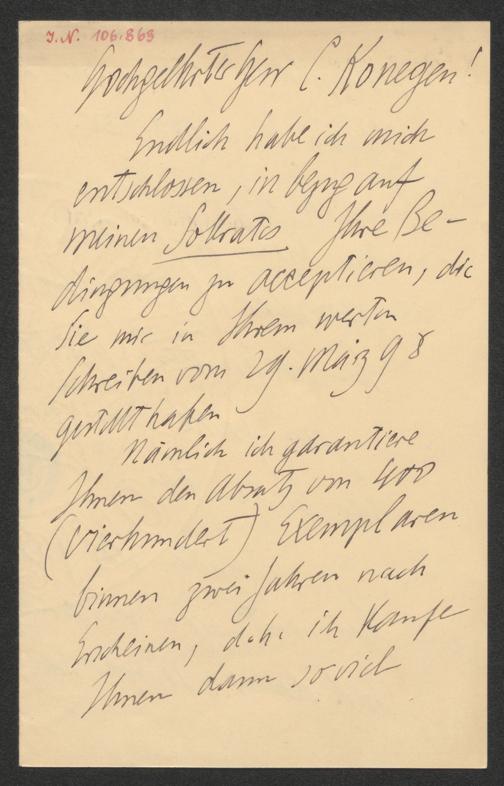 J. N. 106.869
Hochgeehrter Herr C. Konegen!
Endlich habe ich mich
entschlossen, in bezug auf
meinen Sokrates Ihre Be-
dingungen zu acceptieren, die
Sie mir in Ihrem werten
Schreiben vom 29. März 98
gestellt haben
Nämlich ich garantiere
Ihnen den Absatz von 400
(vierhundert) Exemplaren
binnen zwei Jahren nach
Erscheinen, d. h. ich kaufe
Ihnen dann soviel